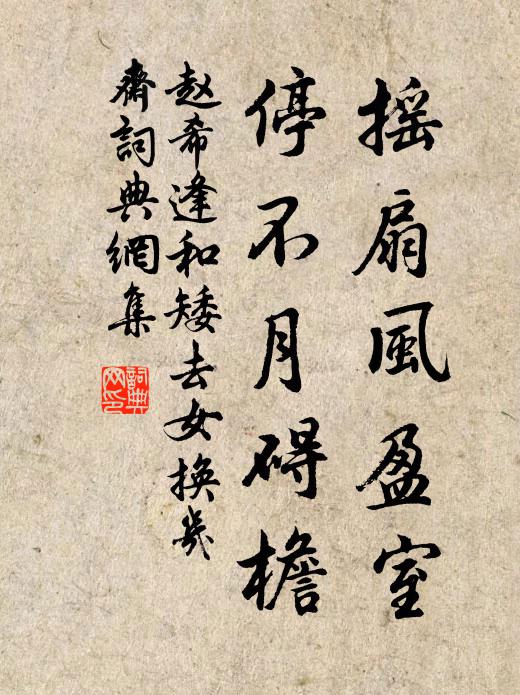 摇扇風盈室
停不月碍檐
赵希逢和矮去女换几
齋詞典網集
詞典網印